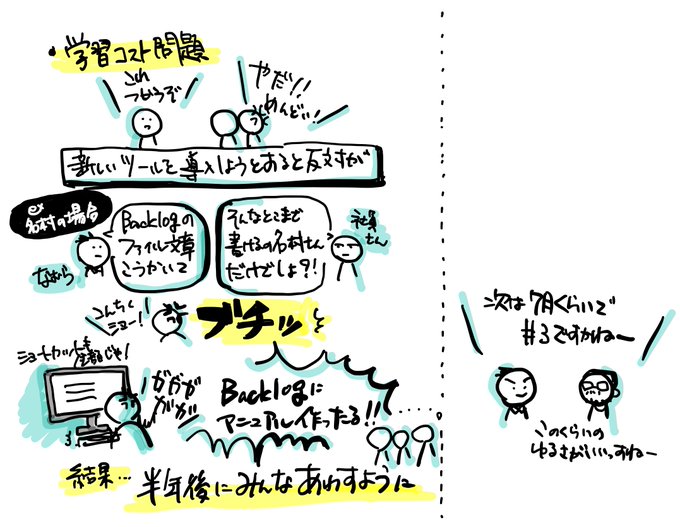 ・学習コスト問題
これ
つかうぞ
やだ!!
めんどい!
新しいツールを導入しようとすると反対が
ex
名村の場合
Backlogの
ファイル文章
こうかいて
なむら
そんなとこまで
書けるの名村さん
だけでしょ?!
社員
さん
こんちく
ショー!
ブチッと
ショートカットも
全部じゃ!
ガガガ
ガガ
Backlogに
マニュアル作ったる!!
結果…
半年後にみんなあわすように
次は7月くらいで
#3ですかねー
このくらいの
ゆるさがいいっすねー